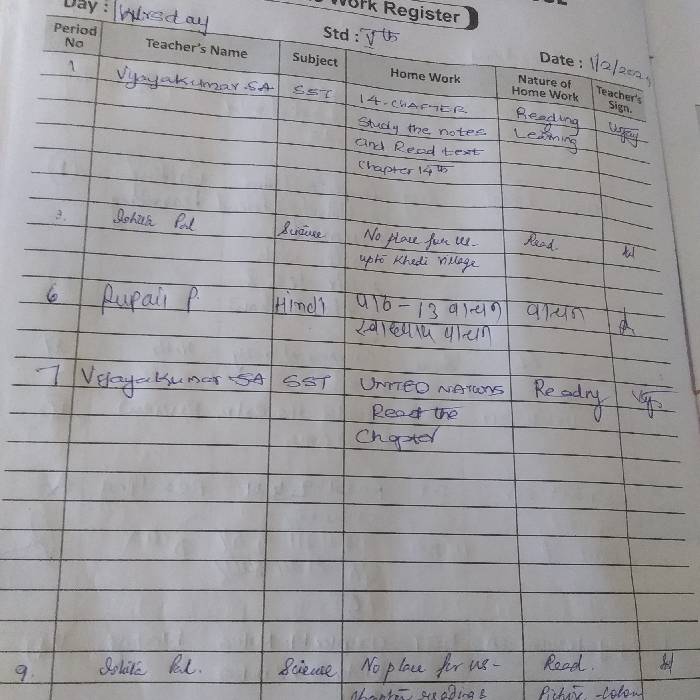 Work Register
Day : Thursday
Std : Vth
Date : 1/2/202
Period No
Teacher's Name
Subject
Home Work
Nature of Home Work
Teacher's Sign.
1 Vijayakumar SA SST 14-CHAPTER Reading
Study the notes Learning
and Read text
Chapter 14th
3. Ishita Pal Science No place for us- Read.
upto Khedi village
6 Rupali P. Hindi पाठ - 13 वाचन वाचन
स्वाध्याय वाचन
7 Vijayakumar SA SST UNITED NATIONS Reading
Read the
Chapter
9. Ishita Pal. Science No place for us- Read.
Chapter reading &